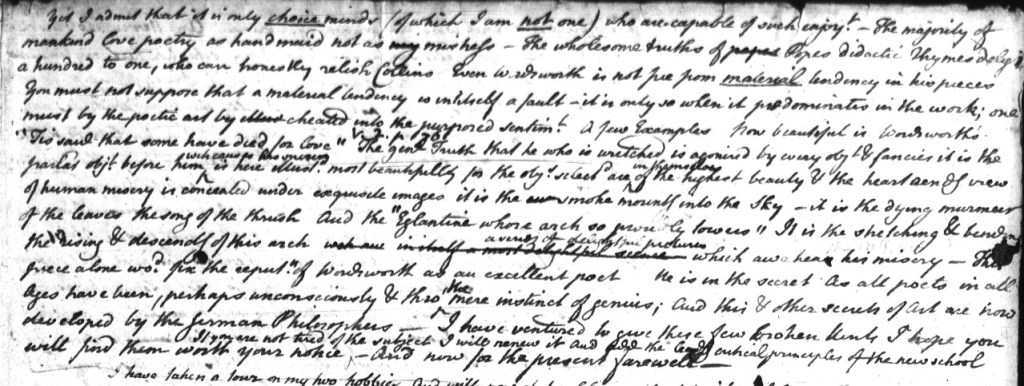 Yet I admit that it is only choice minds (of which I am not one) who are capable of such enjoyt. – The majority of
mankind love poetry as handmaid not as my mistress – The wholesome truths of popes Popes didactic rhymes delight
a hundred to one, who can honestly relish Collins Even Wordsworth is not free from material tendency in his pieces
You must not suppose that a material tendency is in itself a fault – it is only so when it predominates in the work; one
must by the poetic art be cheated into the purposed sentimt. A few Examples How beautiful is Wordsworths
"Tis said that some have died for love" V. 1. p. 76 The genl Truth that he who is wretched is agonised by every objt & fancies it is the
objt before him which causes his misery is here illust. most beautifully for the objts select'd are in themselves of the highest beauty & the heart view
of human misery is concealed under exquisite images it is the smoke mounts into the sky – it is the dying murmur
of the leaves the song of the thrush And the "Eglantine whose arch so proudly towers" It is the stretching & bend
the rising & descends of this arch in itself a most delightful scene which his misery –
piece alone wod. fix the reputn. of Wordsworth as an excellent poet He is in the secret As all poets in all
Ages have been, perhaps unconsciously & thro' the mere instinct of genius; And this & other secrets of Art are now
developed by the German Philosophers – I have ventured to give these few broken hints I hope you
will find them worth your notice, – If you are not tired of the subject I will renew it and add the critical principles of the new school
And now for the present farewell –
I have taken a tour on my two hobbies And will